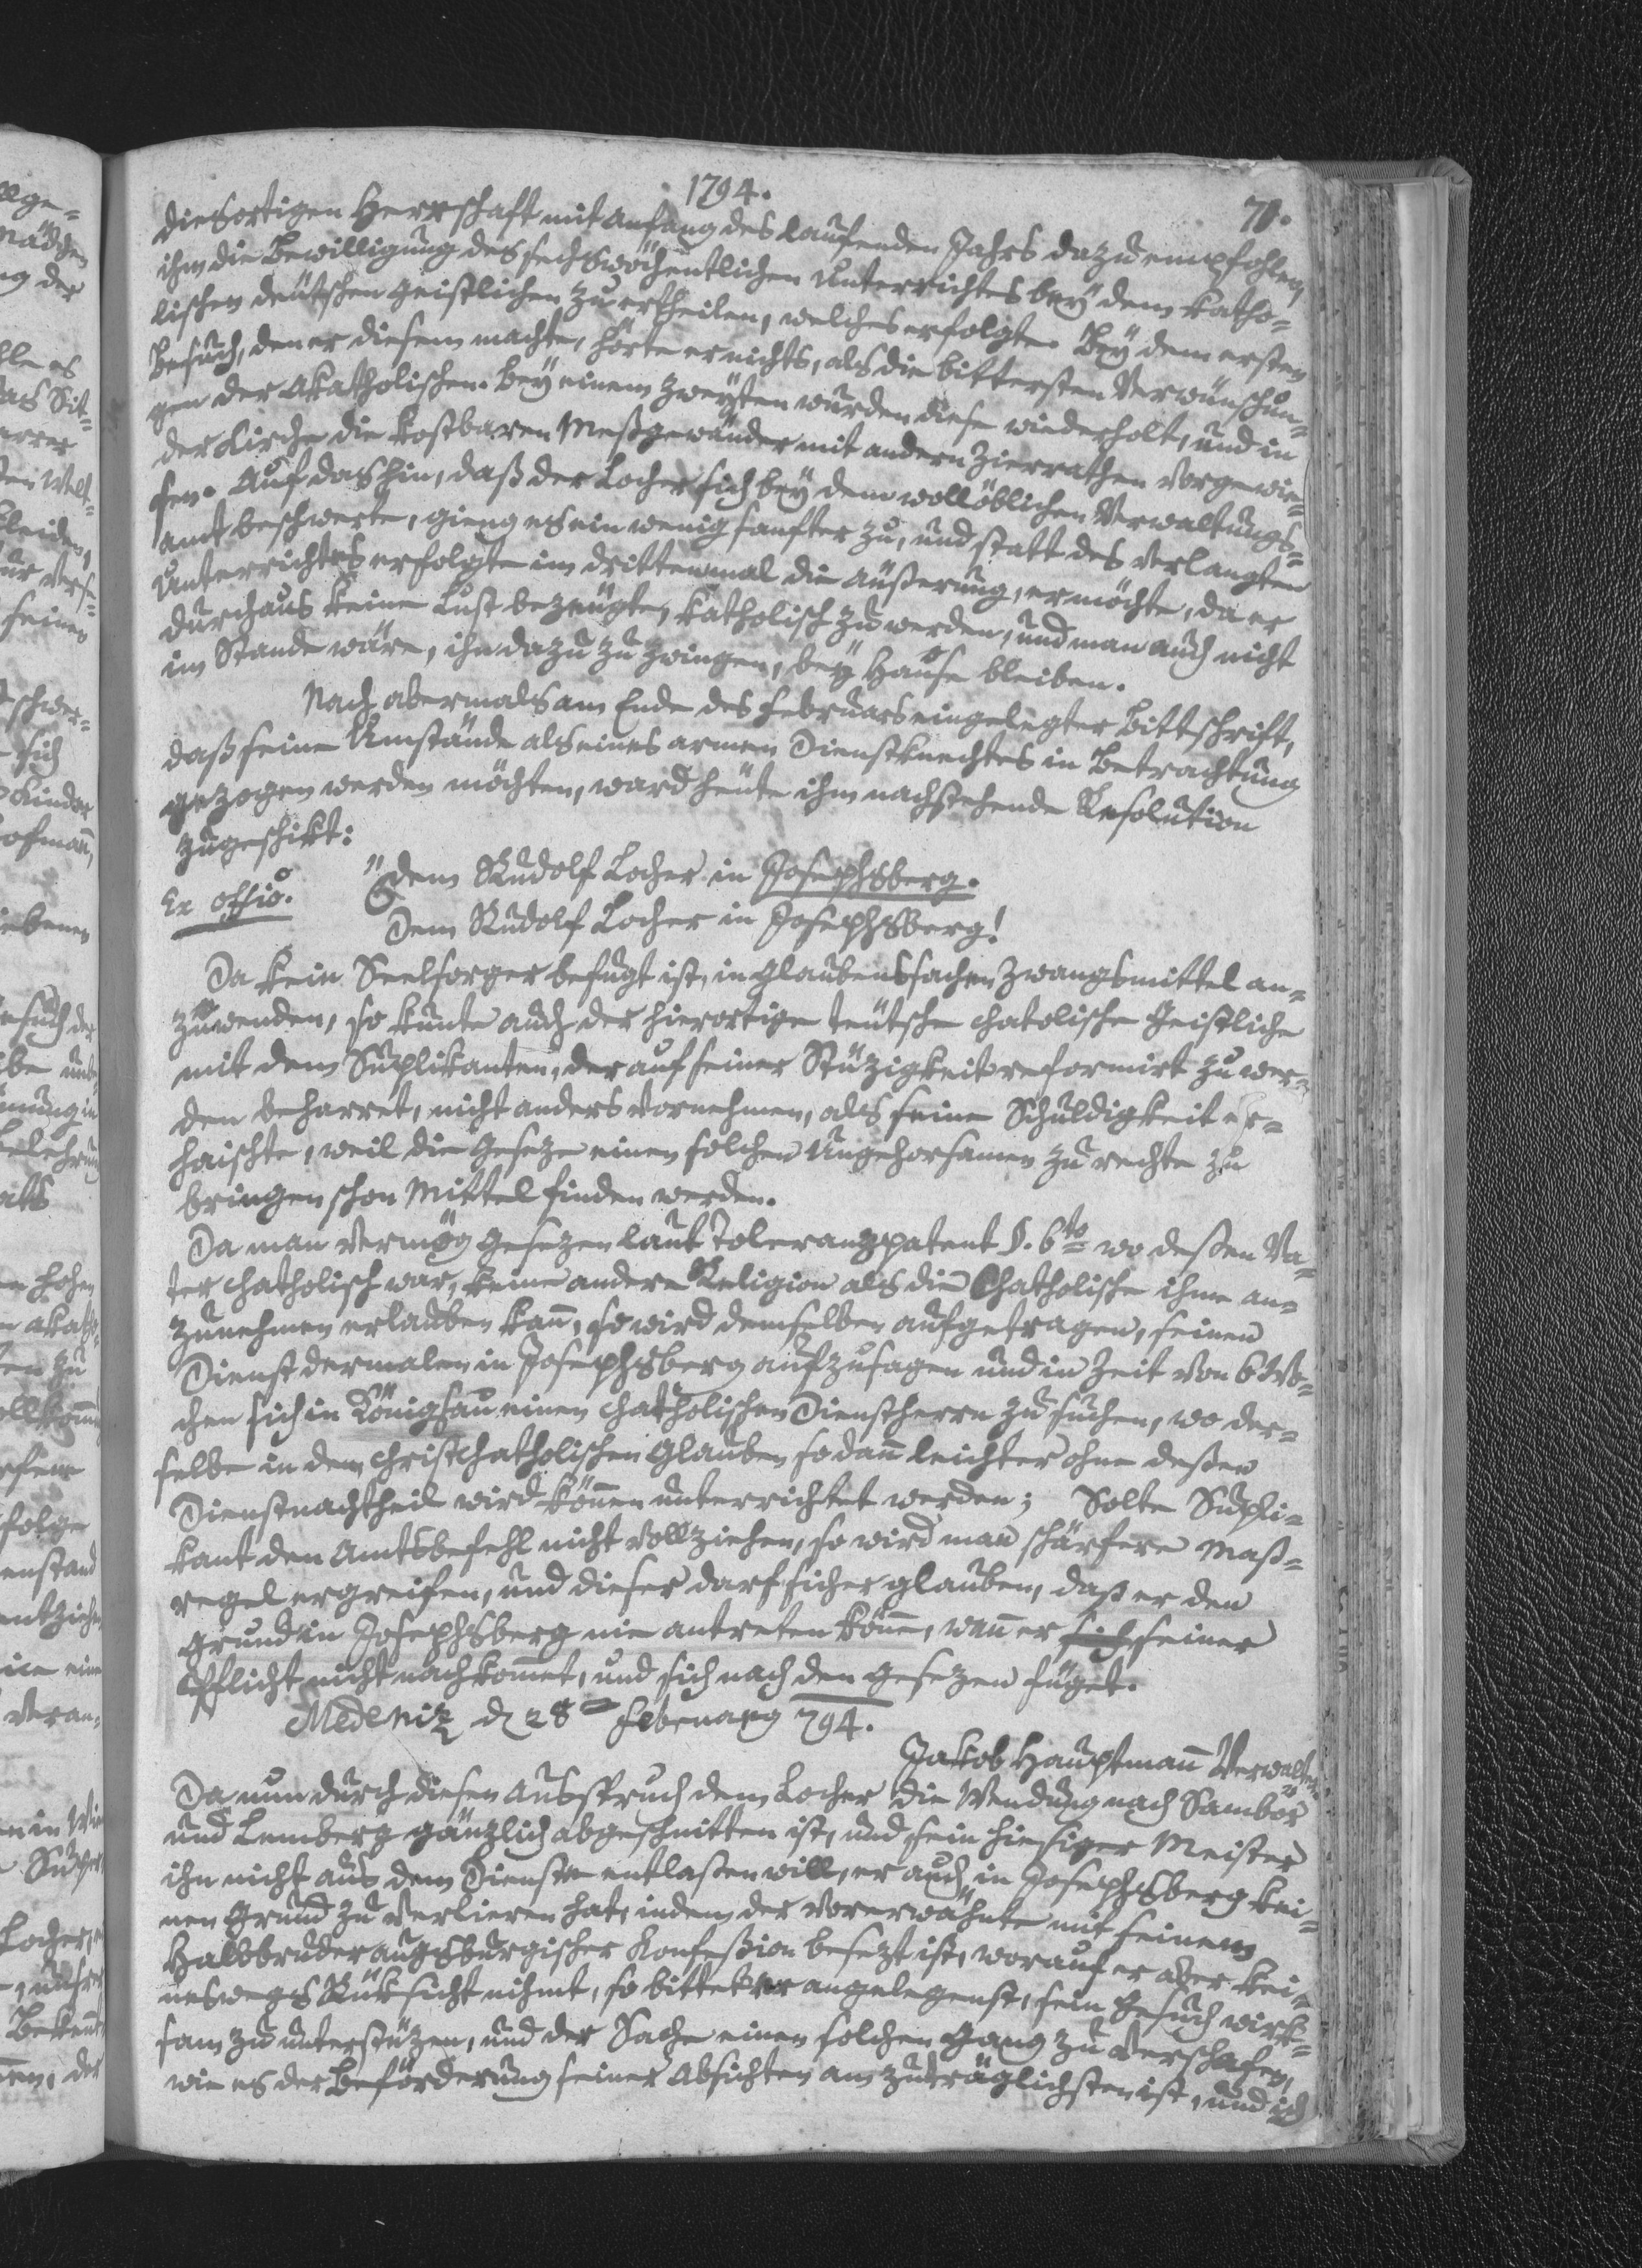 1794.
71.
diesortigen Herrschaft mit Anfang des laufenden Jahrs dazu empfohlen,
ihm die Bewilligung des sechswöchentlichen Unterrichtes beÿ dem katho=
lischen deütschen Geistlichen zu ertheilen, welches erfolgte. Beÿ dem ersten
Besuch, den er diesem machte, hörte er nichts, als die bittersten Verwünschun=
gen der Akatholischen. Beÿ einem zweÿten wurden diese wiederholt, und in
der Kirche die kostbaren Meßgewänder mit andern Zierrathen vorgewie=
sen. Auf das hin, daß der Locher sich beÿ dem wollöblichen Verwaltungs=
amt beschwerte, gieng es ein wenig sanfter zu, und statt des verlangten
Unterrichtes erfolgte im drittenmal die Äußerung, er möchte, da er
durchaus keine Lust bezeugte, katholisch zu werden, und man auch nicht
im Stande wäre, ihn dazu zu zwingen, beÿ Hause bleiben.
Nach abermals am Ende des Februars eingelegter Bittschrift,
daß seine Umstände als eines armen Dienstknechtes in Betrachtung
gezogen werden möchten, ward heute ihm nachstehende Resolution
zugeschikt:
Ex offiô. "dem Rudolf Locher in Josephsberg.
Dem Rudolf Locher in Josephsberg!
Da kein Seelsorger befugt ist, in Glaubenssachen Zwangsmittel an=
zuwenden, so kunte auch der hierortige teutsche chatolische Geistliche
mit dem Suplikanten, der auf seiner Stüzigkeit reformirt zu wer=
den beharret, nicht anders vornehmen, als seine Schuldigkeit er=
haischte, weil die Geseze einen solchen Ungehorsamen zu rechte zu
bringen schon Mittel finden werden.
Da man vermög Gesezen laut Toleranzpatent §. 6to wo deßen Va=
ter chatholisch war, keine andere Religion als die Chatholische ihme an=
zunehmen erlauben kañ, so wird demselben aufgetragen, seinen
Dienst dermalen in Josephsberg aufzusagen und in Zeit von 6 Wo=
chen sich in Königsau einen chatholischen Dienstherrn zu suchen, wo der=
selbe in dem christchatholischen Glauben sodañ leichter ohne deßen
Dienstnachtheil wird köñen unterrichtet werden; Solte Supli=
kant den Amtsbefehl nicht vollziehen, so wird man schärfere Maß=
regel ergreifen, und dieser darf sicher glauben, daß er den
Grund in Josephsberg nie antreten köñe, wañ er sich seiner
Pflicht nicht nachkom̃et, und sich nach den Gesezen füget.
Medeniz d 28 Februarÿ 794.
Jakob Hauptmañ Verwalter."
Da nun durch diesen Ausspruch dem Locher die Wendung nach Sambor
und Lemberg gänzlich abgeschnitten ist, und sein hiesiger Meister
ihn nicht aus dem Dienste entlaßen will, er auch in Josephsberg kei=
nen Grund zu verlieren hat, indem der vorerwähnte mit seinem
Halbbruder augsburgischer Konfeßion besezt ist, worauf er aber kei=
neswegs Rüksicht nihmt, so bittet er angelegenst, sein Gesuch wirk=
sam zu unterstüzen, und der Sache einen solchen Gang zu verschafen,
wie es der Beförderung seiner Absichten am zuträglichsten ist, und ich